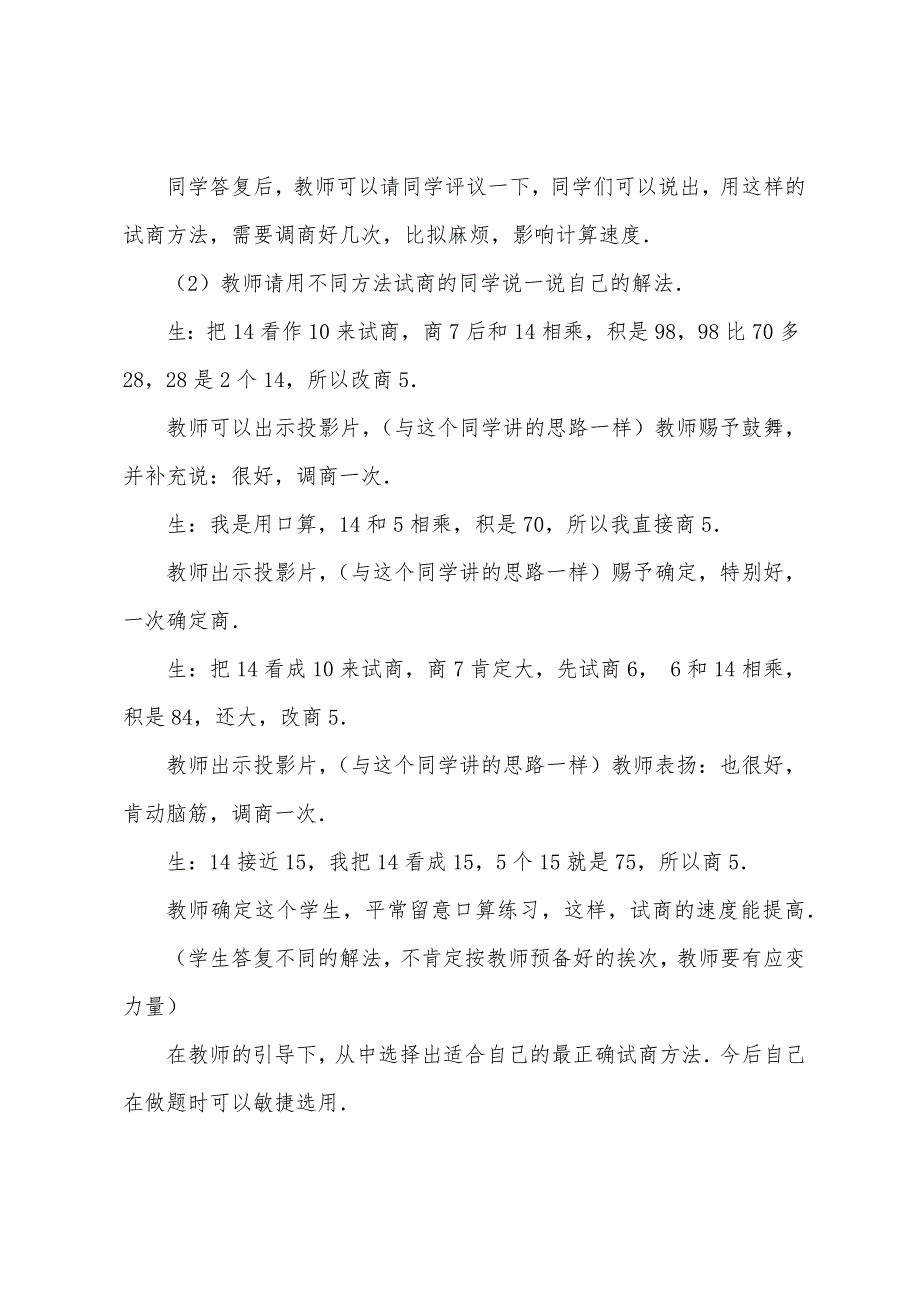 同学答复后，教师可以请同学评议一下，同学们可以说出，用这样的
试商方法，需要调商好几次，比拟麻烦，影响计算速度．
（2）教师请用不同方法试商的同学说一说自己的解法．
生：把 14 看作 10 来试商，商 7 后和 14 相乘，积是 98，98 比 70 多
28，28 是 2 个 14，所以改商 5．
教师可以出示投影片，（与这个同学讲的思路一样）教师赐予鼓舞，
并补充说：很好，调商一次．
生：我是用口算，14 和 5 相乘，积是 70，所以我直接商 5．
教师出示投影片，（与这个同学讲的思路一样）赐予确定，特别好，
一次确定商．
生：把 14 看成 10 来试商，商 7 肯定大，先试商 6， 6 和 14 相乘，
积是 84，还大，改商 5．
教师出示投影片，（与这个同学讲的思路一样）教师表扬：也很好，
肯动脑筋，调商一次．
生：14 接近 15，我把 14 看成 15，5 个 15 就是 75，所以商 5．
教师确定这个学生，平常留意口算练习，这样，试商的速度能提高．
（学生答复不同的解法，不肯定按教师预备好的挨次，教师要有应变
力量）
在教师的引导下，从中选择出适合自己的最正确试商方法．今后自己
在做题时可以敏捷选用．